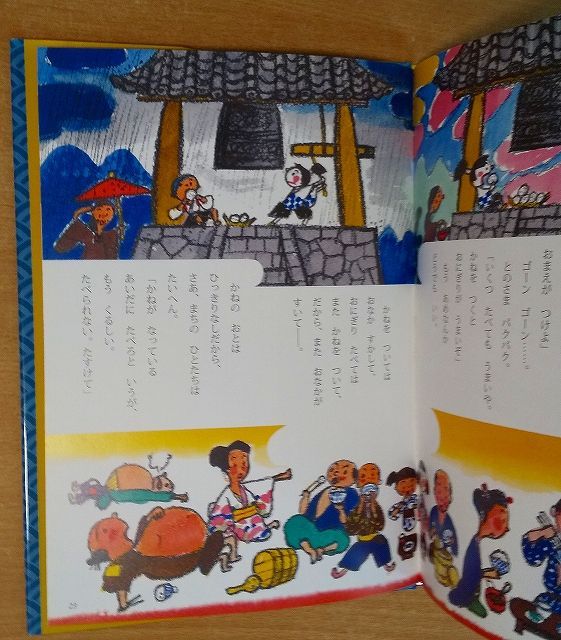 かねを ついては、
おなか すかして、
おにぎり たべては
また かねを ついて、
だから、また おなかが
すいて――。
かねの おとは
ひっきりなしだから、
さあ、まちの ひとたちは
たいへん。
「かねが なっている
あいだに たべろと いうが、
もう くるしい。
たべられない。たすけて」
29
おまえが つけよ」
ゴーン ゴーン……。
とのさま パクパク。
「いくつ たべても うまいや。
かねを つくと
おにぎりが うまいぞ」